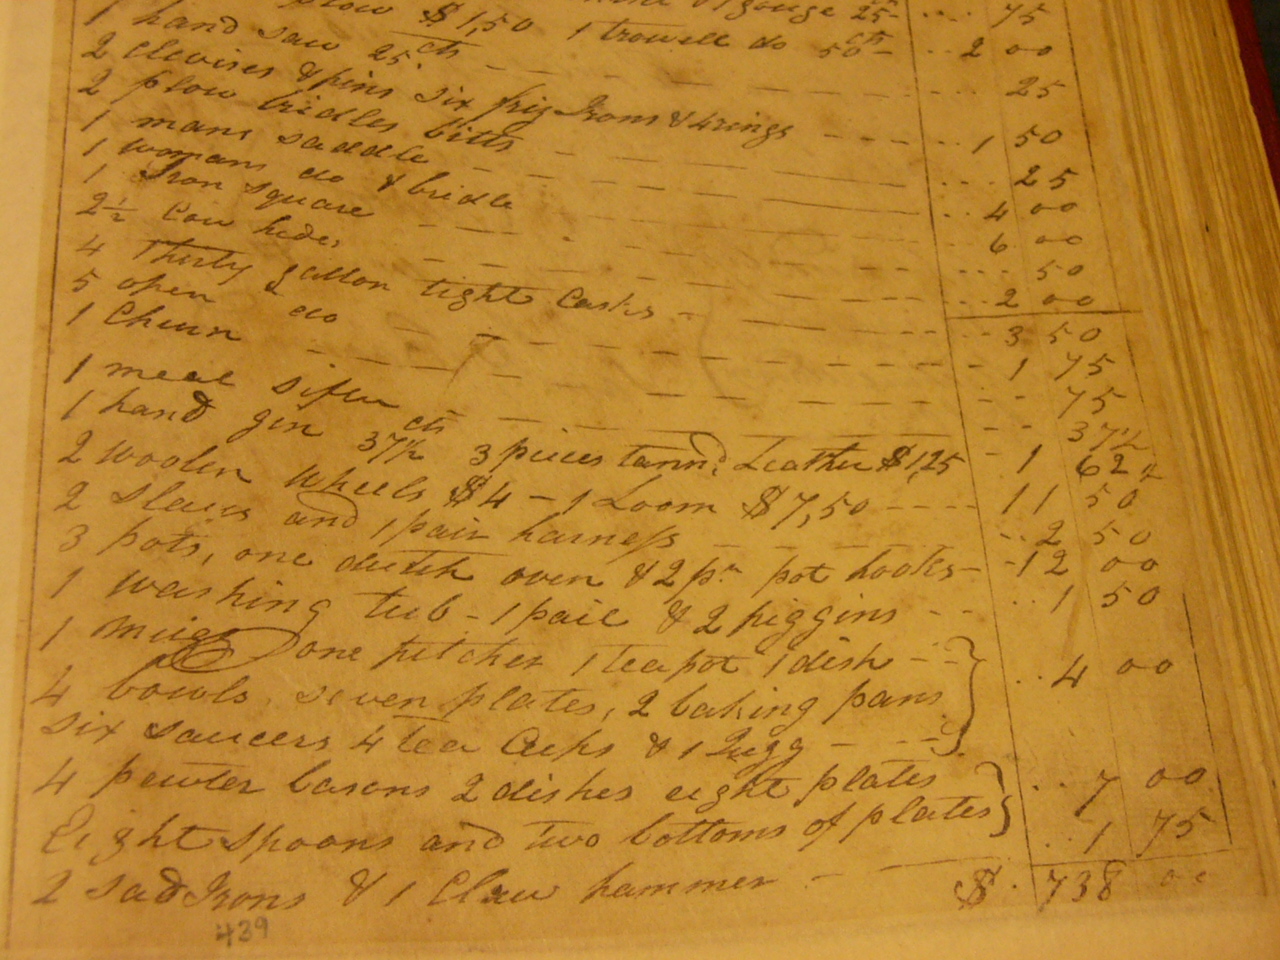 plow $1,50 1 trowell do 50 cts - .. 2 00
1 hand saw 25 cts - - - 25
2 clevises & pins six frig Irons & 4 rings - - - 1 50
2 plow bridles bitts - - - 25
1 mans saddle - - - 4 00
1 womans do & bridle - - - 6 00
1 Iron square - - - 50
2½ Cow hides - - - 2 00
4 Thirty gallon tight Casks - - - 3 50
5 open do - - - 1 75
1 Churn - - - 75
1 meal sifter - - - 37½
1 hand gin 37½ cts 3 pieces tannd Leather $1,25 - 1 62½
2 woolen wheels $4 - 1 Loom $7,50 - - - - 11 50
2 Slaies and 1 pair harness - - - 2 50
3 pots, one dutch oven & 2 pr pot hooks - - 12 00
1 washing tub - 1 pail & 2 piggins - - .. 1 50
1 mugg one pitcher 1 teapot 1 dish - -
4 bowls, seven plates, 2 baking pans .. 4 00
six saucers 4 tea Cups & 1 Jugg - - -
4 pewter basons 2 dishes eight plates .. 7 00
Eight spoons and two bottoms of plates
2 sad Irons & 1 Claw hammer - - .. 1 75
$ . 738 00
439